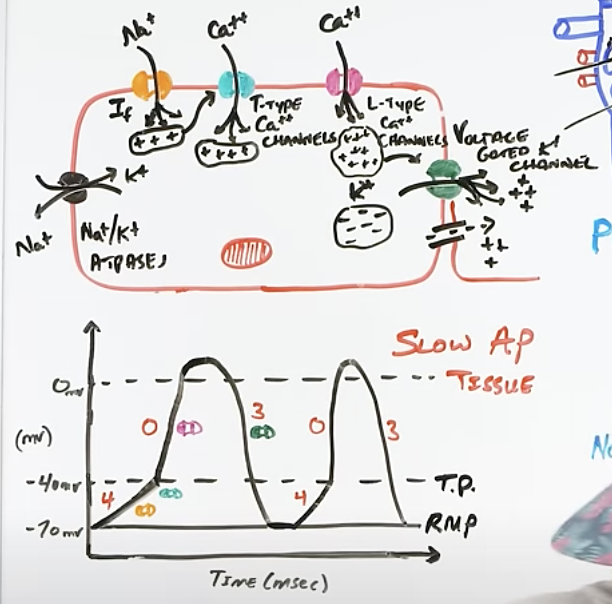 Na+
Ca++
Ca++
If
T-TYPE
Ca++
CHANNELS
L-TYPE
Ca++
CHANNELS
VOLTAGE
GATED K+
CHANNEL
+++
++++
++
+++
++
K+
K+
+
++
+
Na+
Na/K+
ATPASES
++
+
P
SLOW AP
TISSUE
0mv
(mv)
-40mv
-70mv
0
3
0
3
4
4
T.P.
RMP
TIME (msec)
No